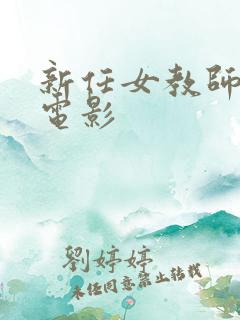 新任女教師
電影
劉婷婷
未經同意禁止轉載